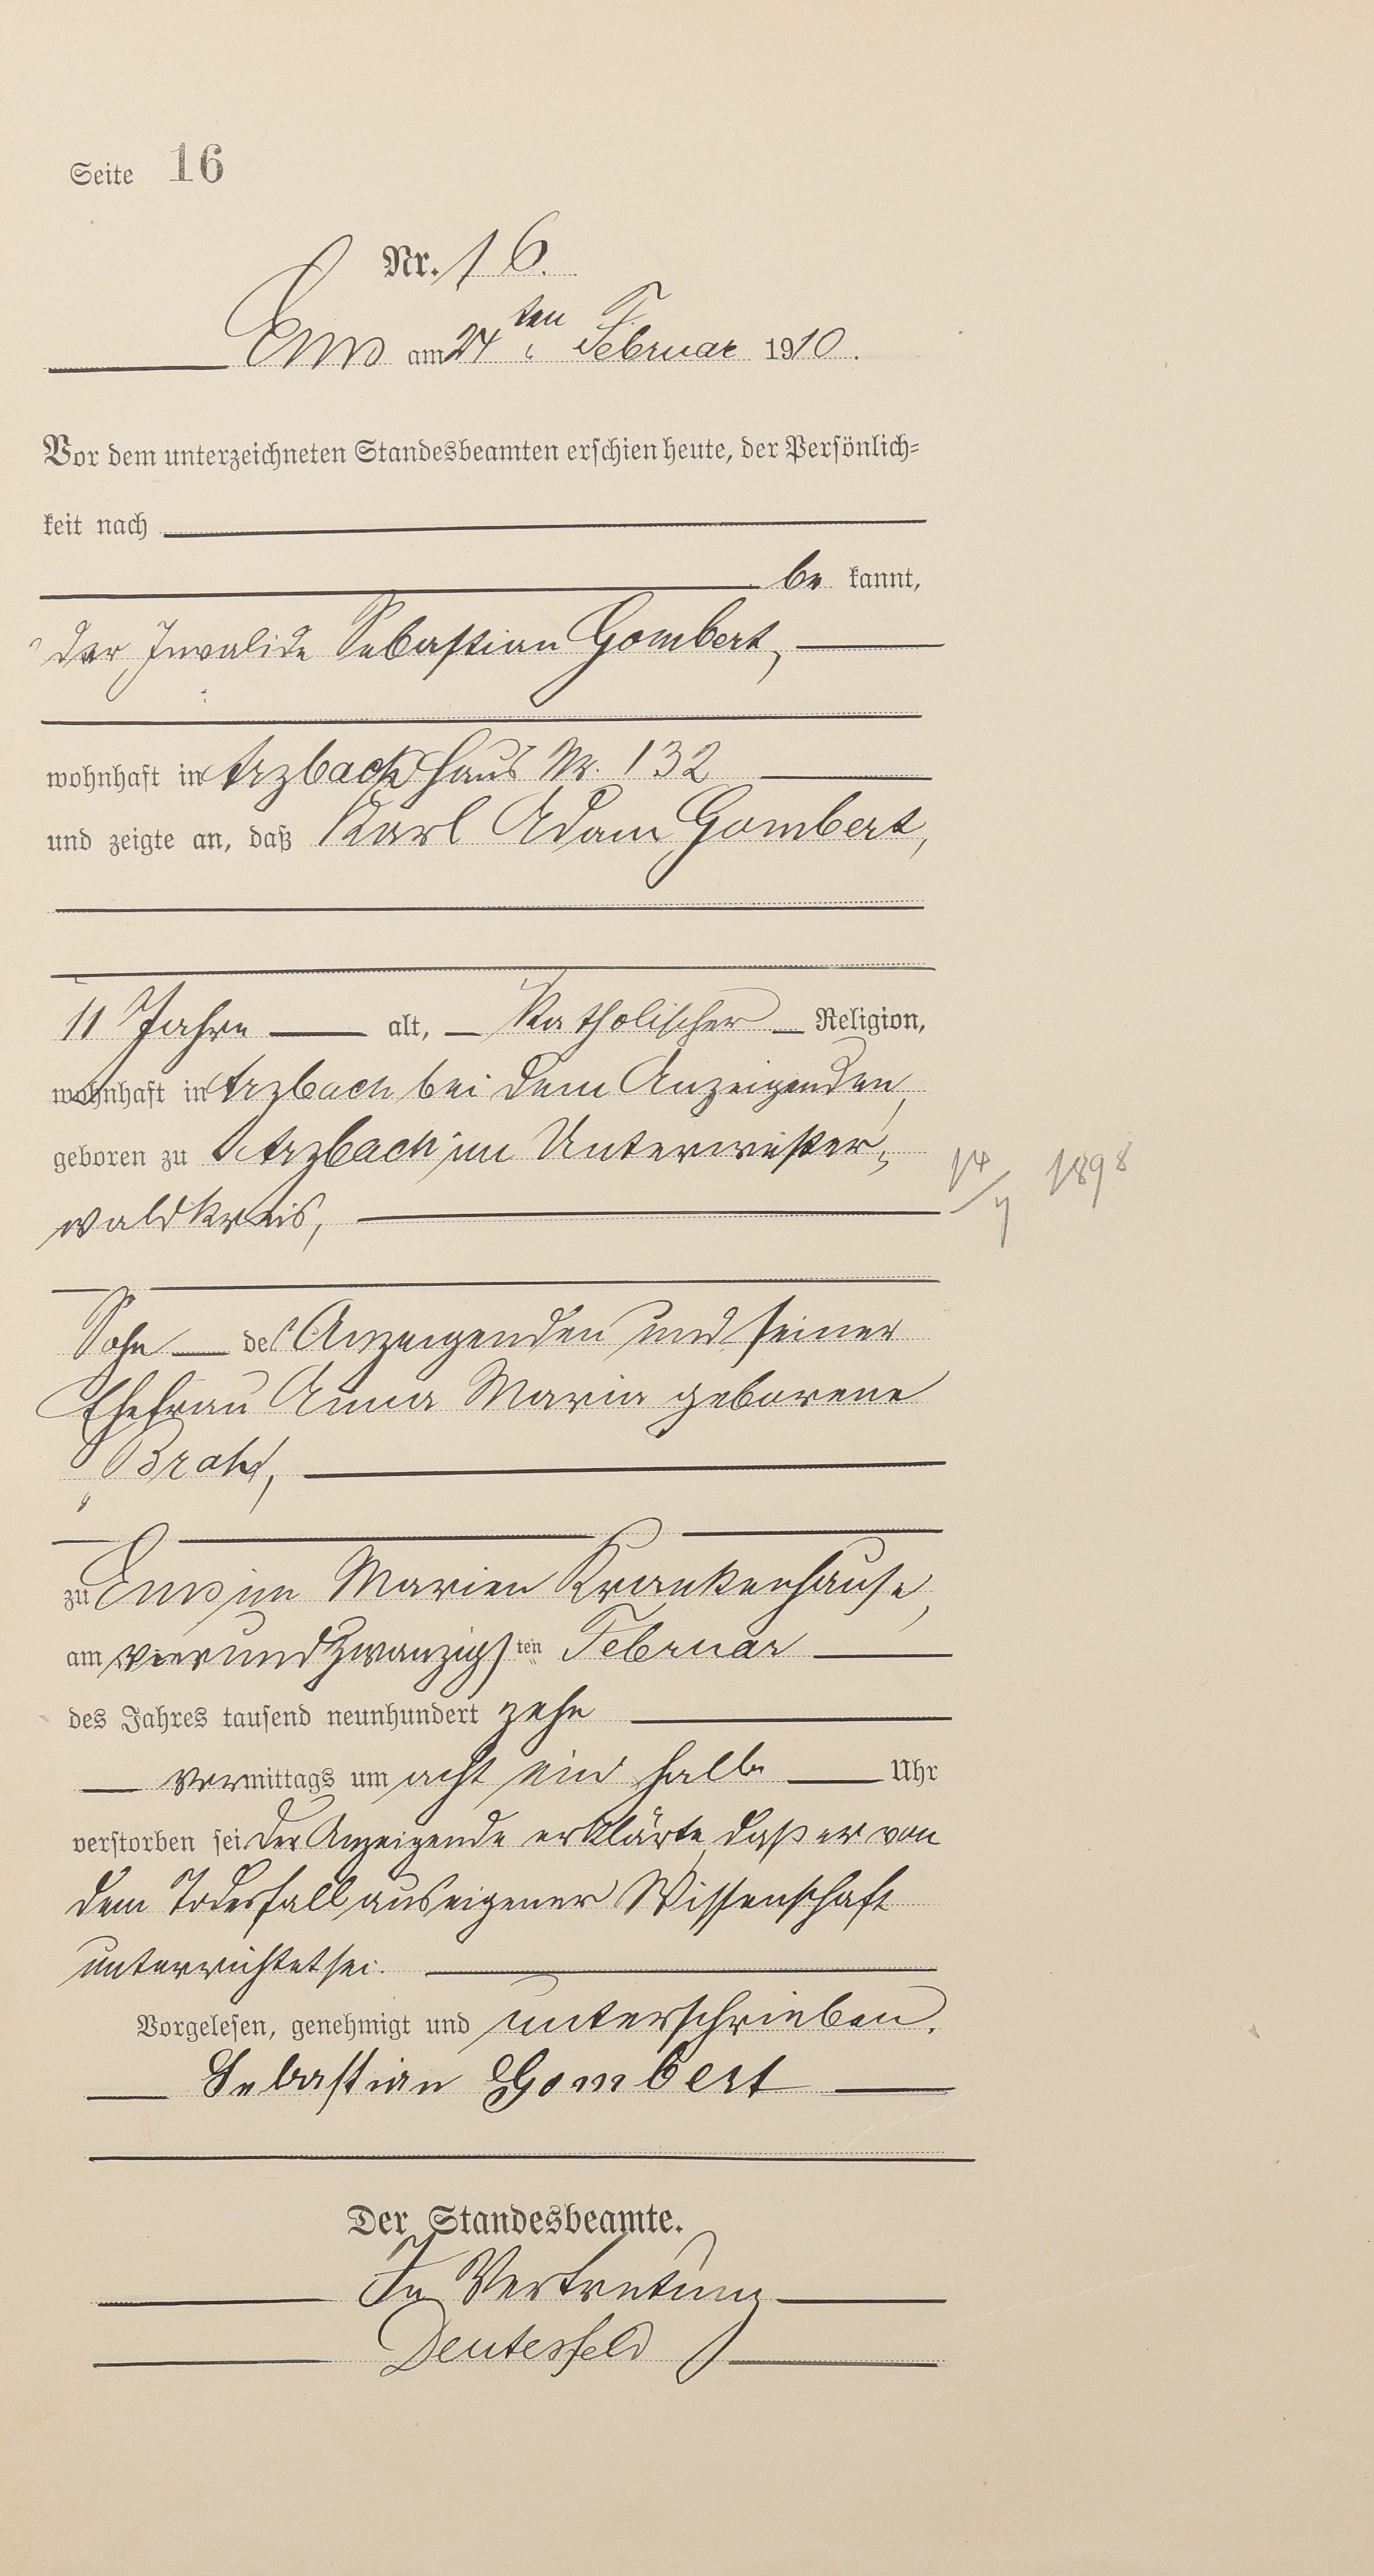 Seite 16
Nr. 16.
Ems am 24ten Februar 1910.
Vor dem unterzeichneten Standesbeamten erschien heute, der Persönlich-
keit nach
be kannt,
der Invalide Sebastian Gombert,
wohnhaft in Arzbach Haus Nr. 132
und zeigte an, daß Karl Adam Gombert,
11 Jahre alt, Katholischer Religion,
wohnhaft in Arzbach bei dem Anzeigenden,
geboren zu Arzbach im Unterwester-
14/7 1898
waldkreis,
Sohn des Anzeigenden und seiner
Ehefrau Anna Maria geborene
zu Ems im Marien Krankenhause,
am vierundzwanzigsten Februar
des Jahres tausend neunhundert zehn
vormittags um acht ein halb Uhr
verstorben sei. Der Anzeigende erklärte, daß er von
dem Todesfall aus eigener Wissenschaft
unterrichtet sei.
Vorgelesen, genehmigt und unterschrieben.
Sebastian Gombert
Der Standesbeamte.
In Vertretung